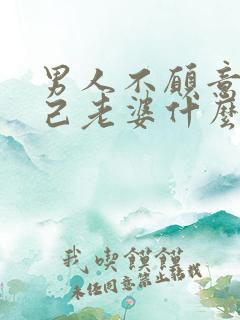 男人不愿意
己老婆什麼
我喫饃饃
未经同意禁止转载